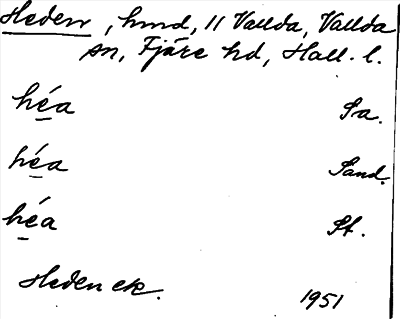 Heden, hmd, 11 Vallda, Vallda
sn, Fjäre hd, Hall. l.
héa Sa.
héa Sand.
héa St.
Heden ek. 1951